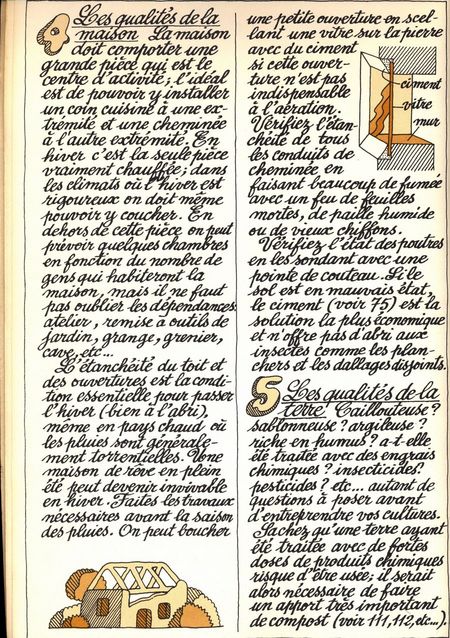 4 Les qualités de la
maison La maison
doit comporter une
grande pièce qui est le
centre d'activité; l'idéal
est de pouvoir y installer
un coin cuisine à une ex-
trémité et une cheminée
à l'autre extrémité. En
hiver c'est la seule pièce
vraiment chauffée; dans
les climats où l'hiver est
rigoureux on doit même
pouvoir y coucher. En
dehors de cette pièce on peut
prévoir quelques chambres
en fonction du nombre de
gens qui habiteront la
maison, mais il ne faut
pas oublier les dépendances:
atelier, remise à outils de
jardin, grange, grenier,
cave, etc...
L'étanchéité du toit et
des ouvertures est la condi-
tion essentielle pour passer
l'hiver (bien à l'abri),
même en pays chaud où
les pluies sont générale-
ment torrentielles. Une
maison de rêve en plein
été peut devenir invivable
en hiver. Faites les travaux
nécessaires avant la saison
des pluies. On peut boucher
une petite ouverture en scel-
lant une vitre sur la pierre
avec du ciment
si cette ouver-
ture n'est pas
indispensable
à l'aération.
Vérifiez l'étan-
chéité de tous
les conduits de
cheminée en
faisant beaucoup de fumée
avec un feu de feuilles
mortes, de paille humide
ou de vieux chiffons.
Vérifiez l'état des poutres
en les sondant avec une
pointe de couteau. Si le
sol est en mauvais état,
le ciment (voir 75) est la
solution la plus économique
et n'offre pas d'abri aux
insectes comme les plan-
chers et les dallages disjoints.
ciment
vitre
mur
5 Les qualités de la
terre Caillouteuse?
sablonneuse? argileuse?
riche en humus? a-t-elle
été traitée avec des engrais
chimiques? insecticides?
pesticides? etc... autant de
questions à poser avant
d'entreprendre vos cultures.
Sachez qu'une terre ayant
été traitée avec de fortes
doses de produits chimiques
risque d'être usée; il serait
alors nécessaire de faire
un apport très important
de compost (voir 111, 112, etc...).